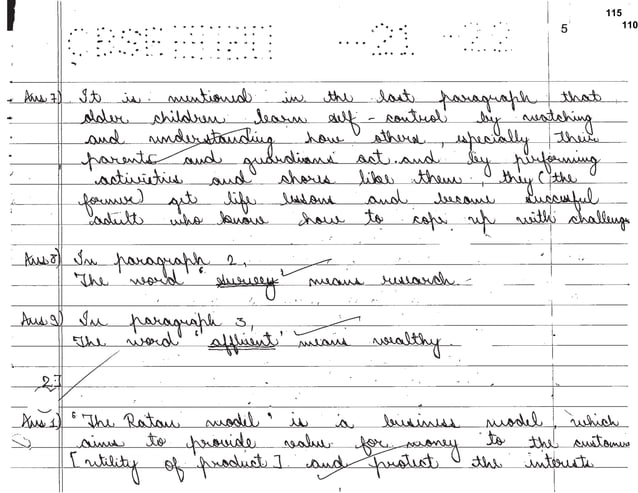 115
110
CBSE ---21 --22 5
Ans 7) It is mentioned in the last paragraph that
older children learn self-control by watching
and understanding how others, especially their
parents and guardians act and by performing
activities and chores like them, they (the
former) get life lessons and become successful
adult who know how to cope up with challenge
Ans 8) In paragraph 2,
The word 'survey' means research.
Ans 9) In paragraph 3,
The word 'affluent' means wealthy
2]
Ans 1) 'The Ratan model' is a business model, which
aims to provide value for money to the customer
[utility of product] and protect the interests